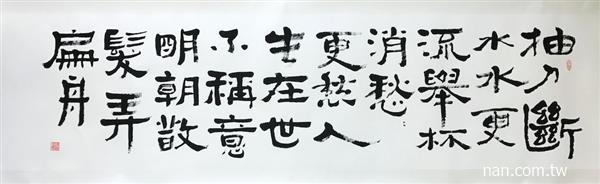 抽刀斷
水水更
流舉杯
消愁
更愁人
生在世
不稱意
明朝散
髮弄
扁舟
nan.com.tw